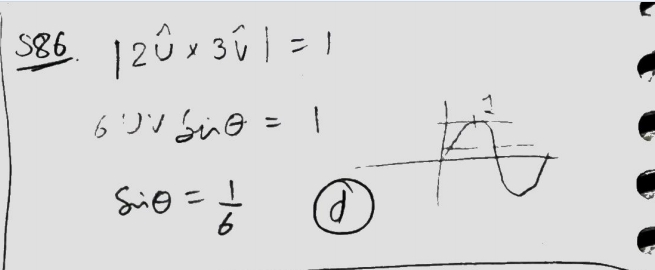 S86. |2Û x 3v̂| = 1
6 UV Sinθ = 1
1
Sinθ = 1/6 (d)